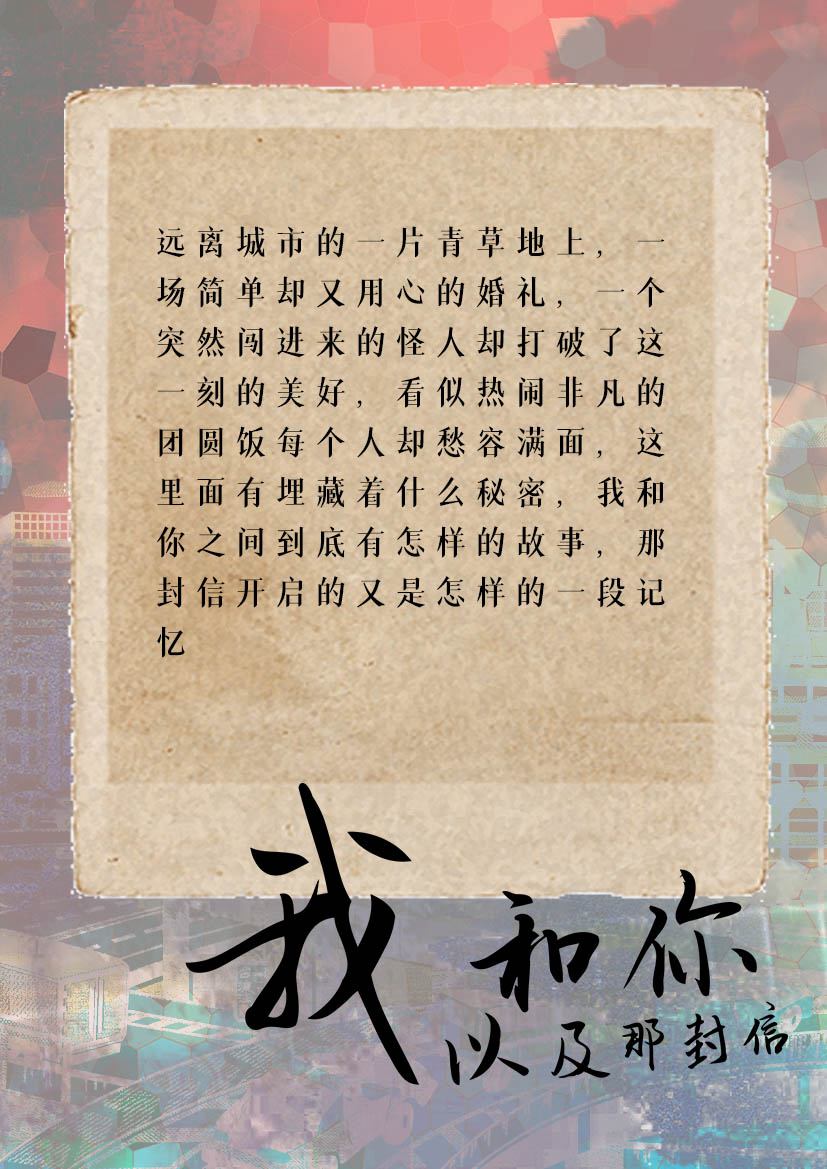 远离城市的一片青草地上，一
场简单却又用心的婚礼，一个
突然闯进来的怪人却打破了这
一刻的美好，看似热闹非凡的
团圆饭每个人却愁容满面，这
里面有埋藏着什么秘密，我和
你之间到底有怎样的故事，那
封信开启的又是怎样的一段记
忆
我和你
以及那封信